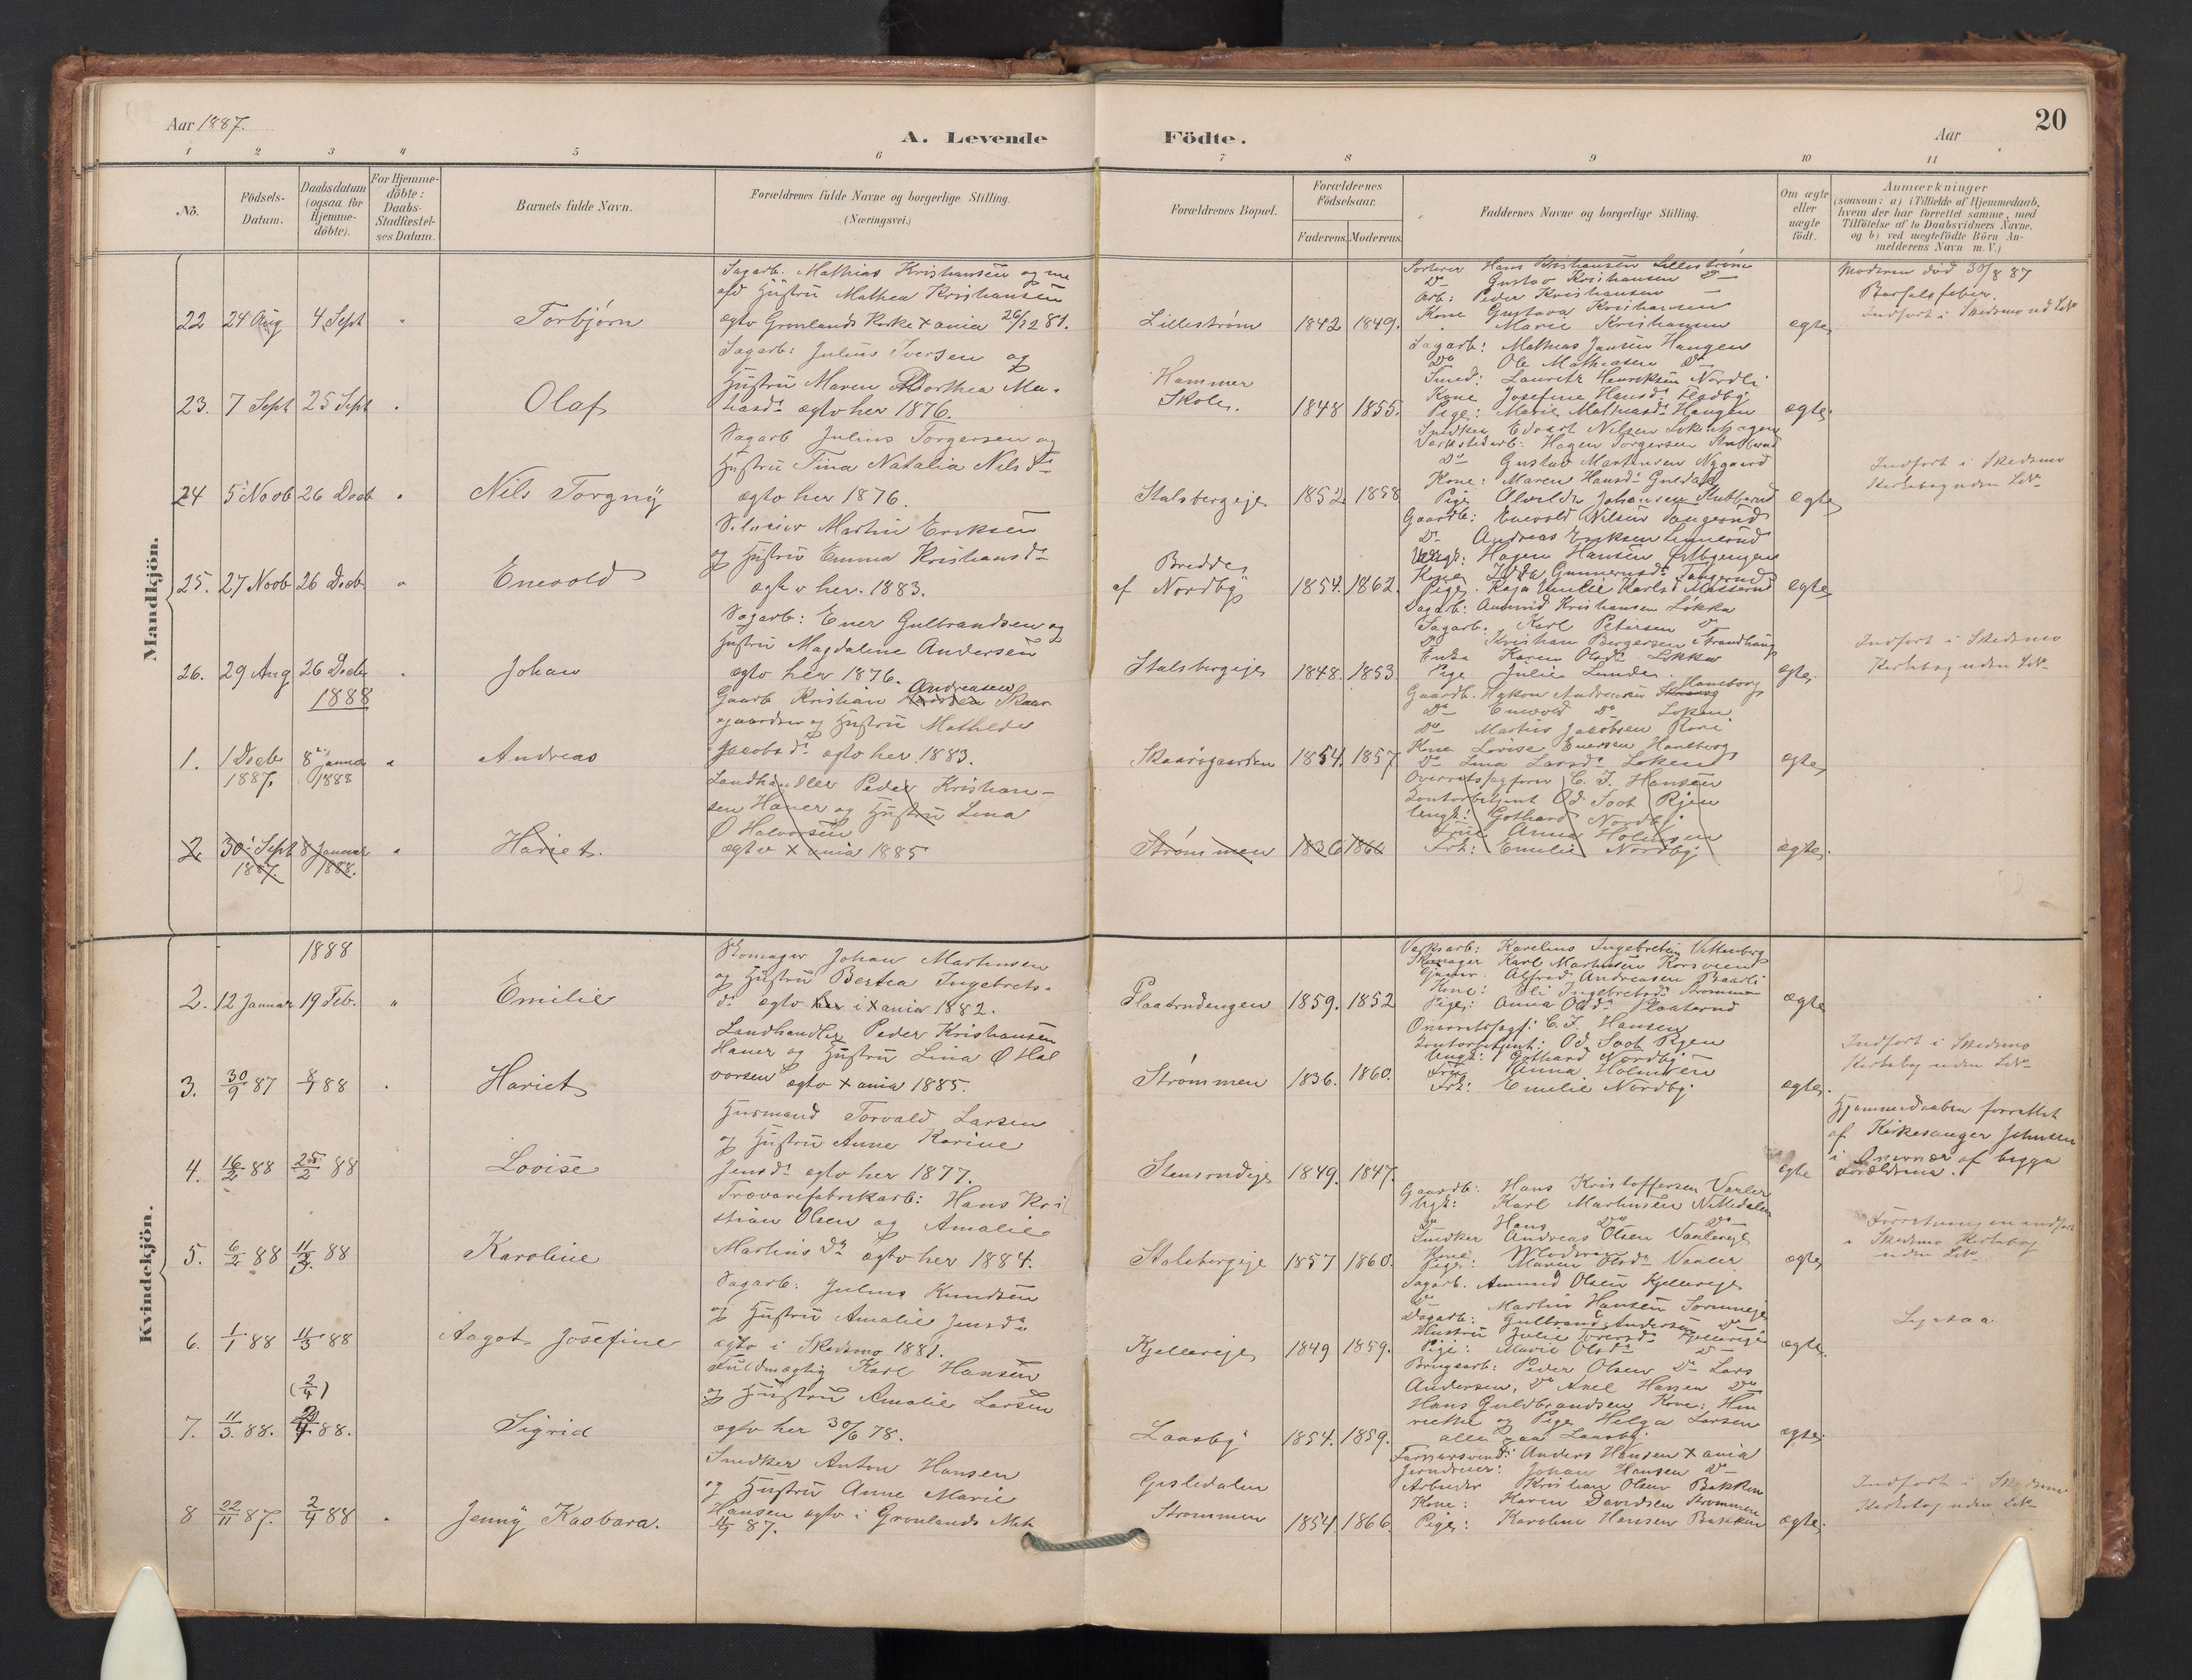 20
Aar 1887.
A. Levende Födte.
Aar
1 2 3 4 5 6 7 8 9 10 11
No.
Födsels-Datum.
Daabsdatum (ogsaa for Hjemme-döbte).
For Hjemme-döbte: Daabs-Stadfæstel-ses Datum.
Barnets fulde Navn.
Forældrenes fulde Navne og borgerlige Stilling.
(Næringsvei.)
Forældrenes Bopæl.
Forældrenes Födselsaar.
Faderens. Moderens.
Faddernes Navne og borgerlige Stilling.
Om ægte eller uægte födt.
Anmærkninger
(saasom: a) i Tilfælde af Hjemmedaab, hvem der har forrettet samme, med Tilföielse af to Daabsvidners Navne, og b) ved uægtefödte Börn An-melderens Navn m. V.)
Mandkjön.
22 24 Aug 4 Sept " Torbjørn
Sagarb. Mathias Kristiansen og nu
afd Hustru Mathea Kristiansen
egtv Grønlands Kirke Xania 26/12 81.
Lillestrøm 1842 1849.
Sorterer Hans Kristiansen Lillestrøm
Do Gustav Kristiansen Do
Arb: Peder Kristiansen
Kone Gustava Kristiansen
" Marie Kristiansen
ægte
Moderen död 30/8 87
Barselfeber.
Indført i Skedsmo
23. 7 Sept 25 Sept " Olaf
Sagarb: Julius Iversen og
Hustru Maren Dorthea Ma-
thiasdr egtv her 1876.
Hammer
Skole. 1848 1855.
Sagarb: Mathias Jansen Haugen
Do Ole Mathiasen Do
Smed: Lauritz Henriksen Nordli
Kone Josefine Hansdr Fladby
Pige: Marie Mathiasdr Haugen
ægte
24 5 Novb 26 Decb " Nils Torgny
Sagarb Julius Torgersen og
Hustru Tina Natalia Nilsdr
egtv her 1876.
Stalsbergeje 1852 1858
Snedker Edvart Nilsen Løkenhagen
Værkstedarb. Hagen Torgersen
Do Gustav Martinsen Nygaard
Kone: Maren Hansdr
Pige Alvilde Johansen
ægte
Indført i Skedsmo
Kirkebog uden Lit
25. 27 Novb 26 Decb " Enevold
Martin Eriksen
og Hustru Emma Kristiansdr
egtv her. 1883.
Bredde
af Nordby 1854. 1862.
Gaardb: Enevold Nilsen Tangerud
Do Andreas Eriksen
Ungk: Hagen Hansen
Kone Gunnerusdr Tangerud
Pige. Kaja Emilie Karlsd
ægte
26. 29 Aug 26 Decb " Johan
Sagarb: Ener Gulbrandsen og
Hustru Magdaline Andersen
egtv her 1876.
Stalsbergeje 1848. 1853
Sagarb: Amund Kristiansen Løkka
Sagarb. Karl Petersen Do
Do Kristian Borgersen Strandhaug
Enke Karen Olsdr Løkka
Pige Julie Lunde.
ægte.
Indført i Skedsmo
Kirkebog uden Lit
1888
1. 1 Decb 1887. 8 Januar 1888 " Andreas
Gaarb Kristian Andreasen Skaar-
gaarden og Hustru Mathilde
Jacobsdr egtv her 1883.
Skaargaarden 1854. 1857
Gaardb. Hakon Andreasen Haneborg
Do Enevold Do Løken
Do Martin Jacobsen
Kone Lovise Enersen Haneborg
Do Lina Larsdr Løken
ægte
2 30 Sept 1887. 8 Januar 1888. " Hariet.
Landhandler Peder Kristian-
sen Haner og Hustru Lina
Ø Halvorsen
egtv Xania 1885
Strømmen 1836 1860
Overretssagfører C. F. Hansen
Kontorbetjent Od. Soot Rjen
Ungk: Gothard Nordby
Frue Anna Holmsen
Frk: Emilie Nordby
ægte.
Kvindekjön.
1888
2. 12 Januar 19 Feb. " Emilie
Skomager Johan Martinsen
og Hustru Bertea Ingebrets-
dr egtv her i Xania 1882.
Plaatrudengen 1859. 1852
Værksarb: Karelius Ingebretsen
Skomager Karl Martinsen Korsveien
Alfred Andreasen
Kone: Oli Ingebretsd Strømmen
Pige: Anna Olsdr Plaaterud
ægte
3. 30/9 87 8/1 88 " Hariet
Landhandler Peder Kristiansen
Haner og Hustru Lina Ø Hal
vorsen egtv Xania 1885.
Strømmen 1836. 1860.
Overretssagf: C. F. Hansen
Kontorbetjent: Od. Soot Rjen
Ungk: Gothard Nordby
Frue Anna Holmsen
Frk: Emilie Nordby
ægte.
Indført i Skedsmo
Kirkebog uden Lit
4. 16/2 88 25/2 88 Lovise
Husmand Torvald Larsen
og Hustru Anne Karine
Jensdr egtv her 1877.
Stensrudeje 1849. 1847.
ægte
Hjemmedaaben forrettet
af Kirkesanger Johnsen
i Overvær af begge
Forældrene.
5. 6/2 88 11/3 88 Karoline
Trævarefabrikarb: Hans Kri
stian Olsen og Amalie
Martinsdr egtv her 1884.
Stalsbergeje 1857 1860.
Gaardb: Hans Kristoffersen
Ugk: Karl Martinsen Nittedalen
Do Hans Do Do
Snedker Andreas Olsen
Kone: Moderen
Pige: Maren Olsdr
ægte
Skedsmo Kirkebog
uden Lit
6. 1/1 88 11/3 88 Aagot Josefine
Sagarb: Julius Knudsen
og Hustru Amalie Jensdr
egtv i Skedsmo 1881.
Kjellereje 1849 1859.
Sagarb. Amund Olsen Kjellereje
Do Martin Hansen
Dagarb: Gulbrand Andersen Do
Hustru Julie Kjellereje
Pige: Marie Olsdr Do
ægte.
(2/4)
7. 11/3. 88. 88. Sigrid
Fuldmægtig Karl Hansen
og Hustru Amalie Larsen
egtv her 30/6 78.
Laasby 1854. 1859.
Brugsarb: Peder Olsen Do Lars
Andersen, Do Axel Hansen Do
Hans Guldbrandsen Kone: Hen
riette og Pige Helga Larsen
alle paa Laasby.
ægte
8 22/11 87. 2/4 88 " Jenny Kasbara.
Snedker Anton Hansen
og Hustru Anne Marie
Hansen egtv i Grønlands Mh
87.
Gisledalen
Strømmen 1854 1866.
Farversvend: Anders Hansen Xania
Jerndreier: Johan Hansen Do
Arbeider Kristian Olsen Bakken
Kone: Karen Davidsen Strømmen
Pige: Karoline Hansen Bakken
ægte.
Indført i Skedsmo
Kirkebog uden Lit